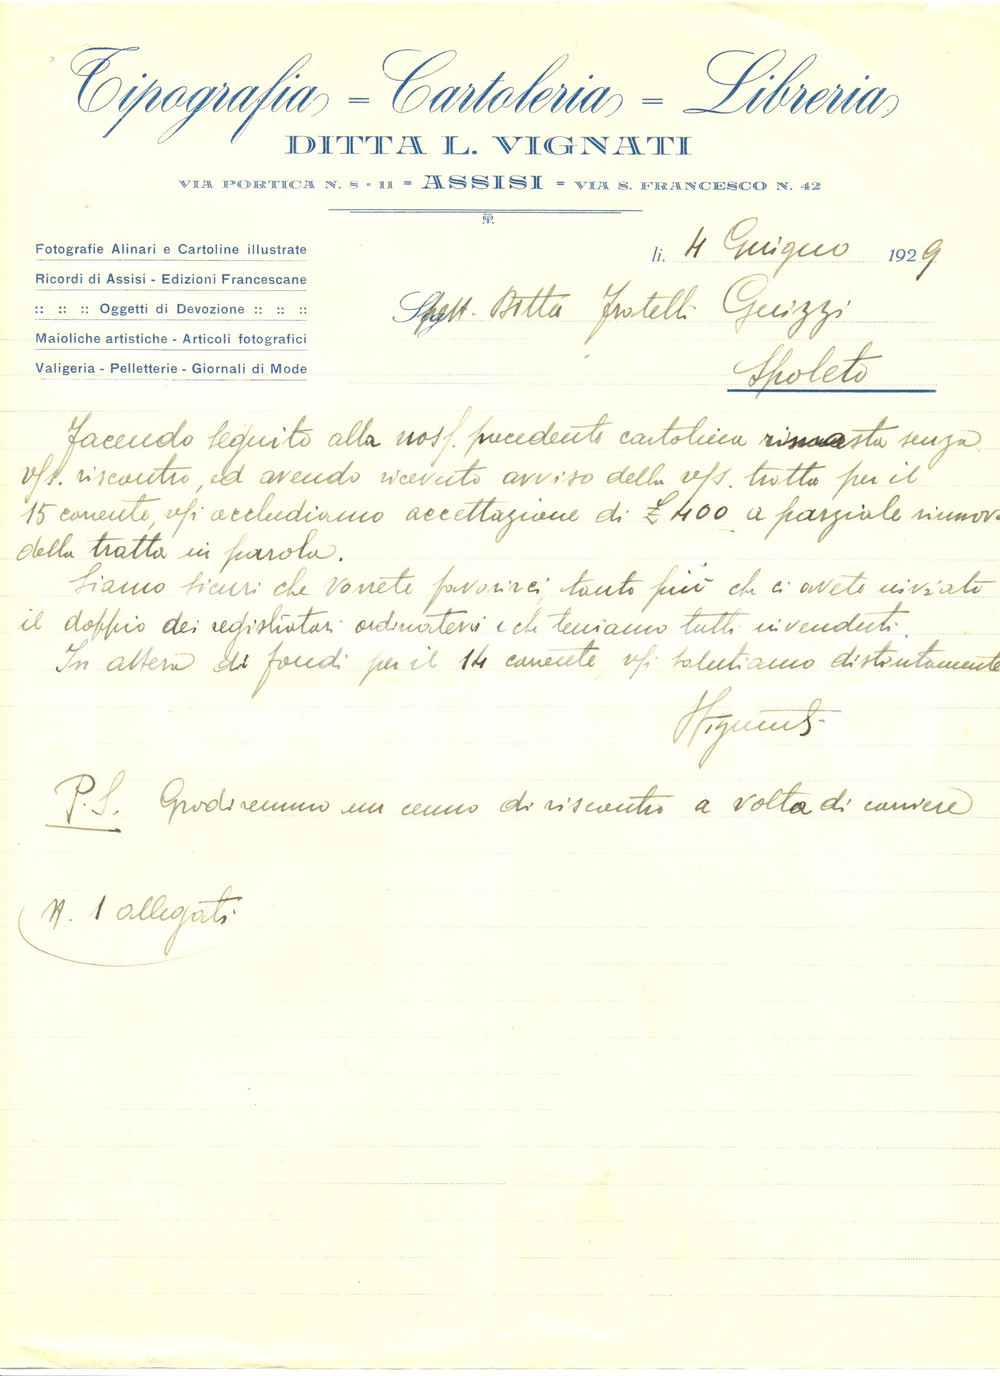 Tipografia = Cartoleria = Libreria
DITTA L. VIGNATI
VIA PORTICA N. 8 - 11 = ASSISI = VIA S. FRANCESCO N. 42
Fotografie Alinari e Cartoline illustrate
Ricordi di Assisi - Edizioni Francescane
:: :: :: Oggetti di Devozione :: :: ::
Maioliche artistiche - Articoli fotografici
Valigeria - Pelletterie - Giornali di Mode
li, 4 Giugno 1929
Spett. Ditta Fratelli Guizzi
Spoleto
Facendo seguito alla nos/. precedente cartolina rimasta senza
v/s. riscontro, ed avendo ricevuto avviso della v/s. tratta per il
15 corrente, v/i accludiamo accettazione di £ 400 a parziale rinnov
della tratta in parola.
Siamo sicuri che vorrete favorirci, tanto più che ci avete inviato
il doppio dei registratori ordinatevi e che teniamo tutti invenduti.
In attesa di fondi per il 14 corrente, v/i salutiamo distintamente
Vignati
P.S. Gradiremmo un cenno di riscontro a volta di corriere
N. 1 allegati